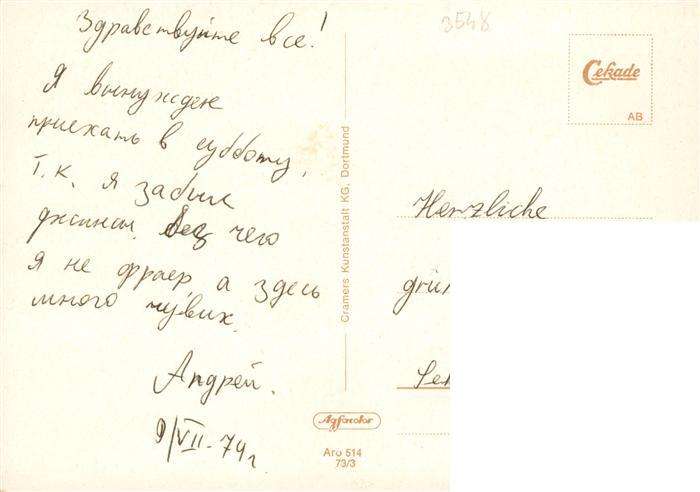 Здравствуйте все!
Я вынужден
приехать в субботу,
т.к. я забыл
джинсы. Без чего
я не фраер, а здесь
много чувих.
Андрей.
9/VII-74 г.
3548
Cekade
AB
Cramers Kunstanstalt KG. Dortmund
Herzliche
grü
Agfacolor
Aro 514
73/3